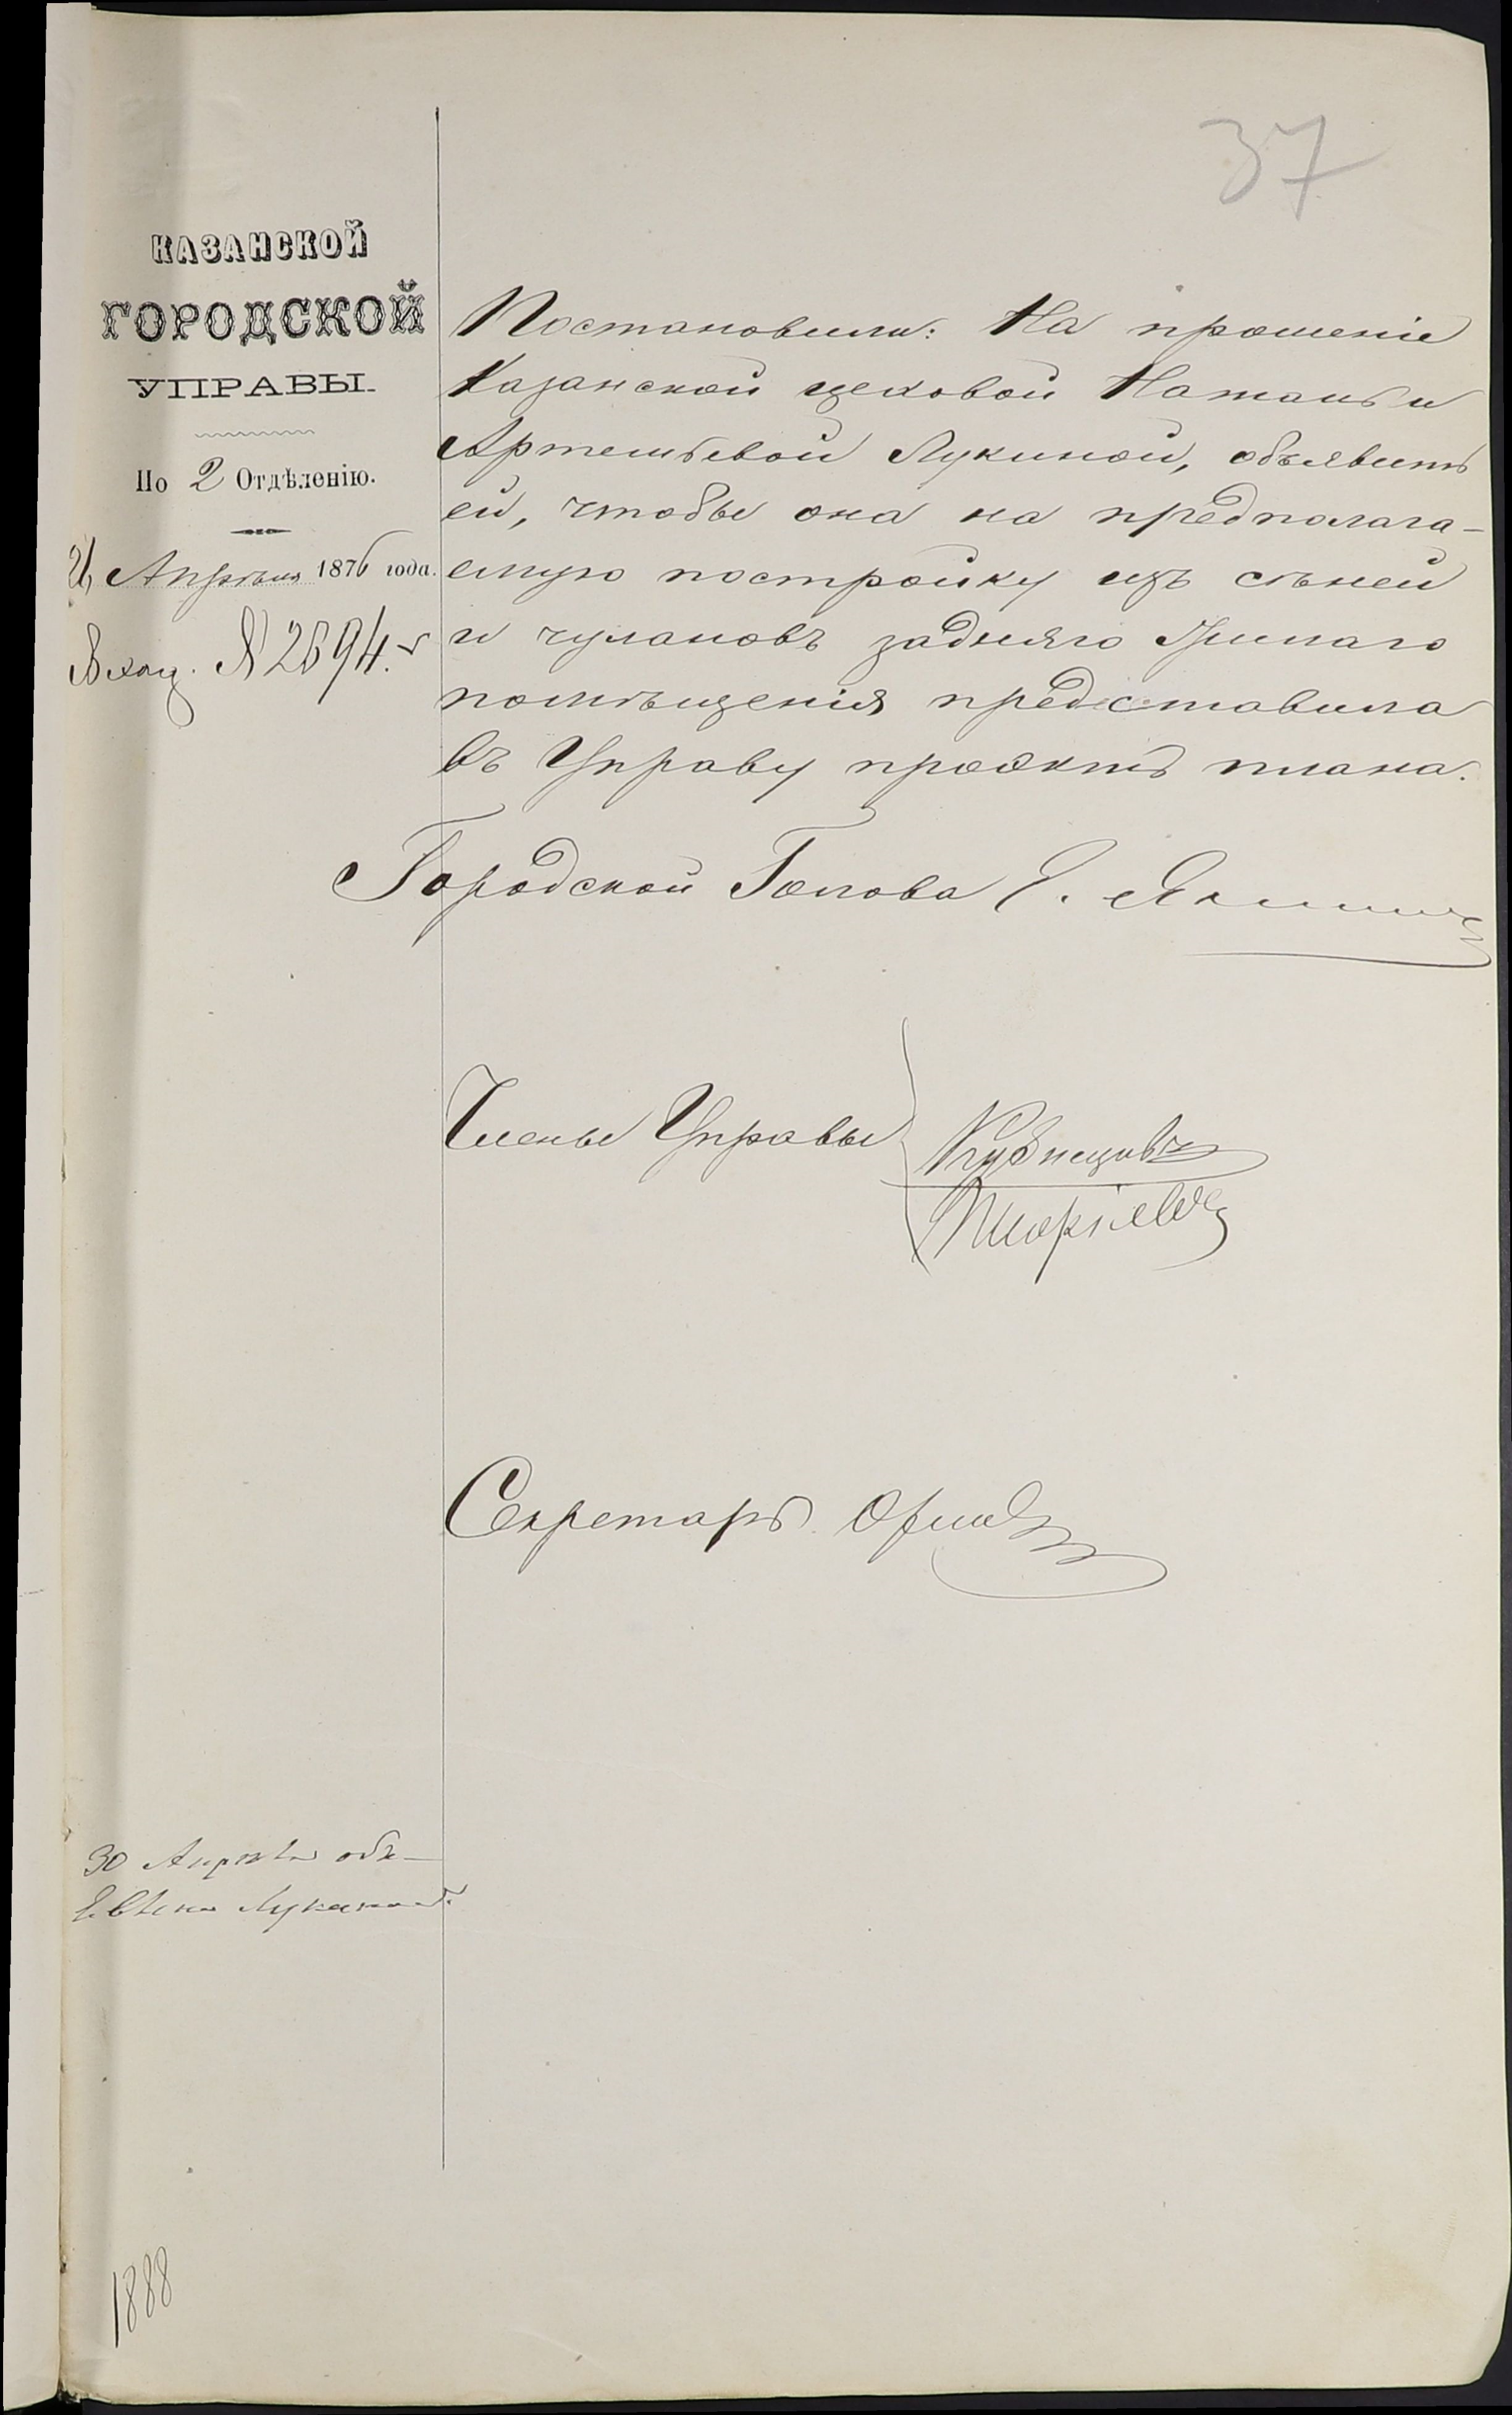 37
КАЗАНСКОЙ
ГОРОДСКОЙ
УПРАВЫ.
По 2 Отдѣленію.
21 Апрѣля 1876 года.
Вход. № 2694.
Постановили: На прошеніе
Казанской цеховой Натальи
Артемьевой Лукиной, объявить
ей, чтобы она на предполага-
емую постройку изъ сѣней
и чулановъ задняго жилаго
помѣщенія представила
въ Управу проэктъ плана.
Городской Голова Э. Янишевскій
Члены Управы
Кузнецовъ
Секретарь Орлов
30 Апрѣля объ-
явлено Лукиной.
1888